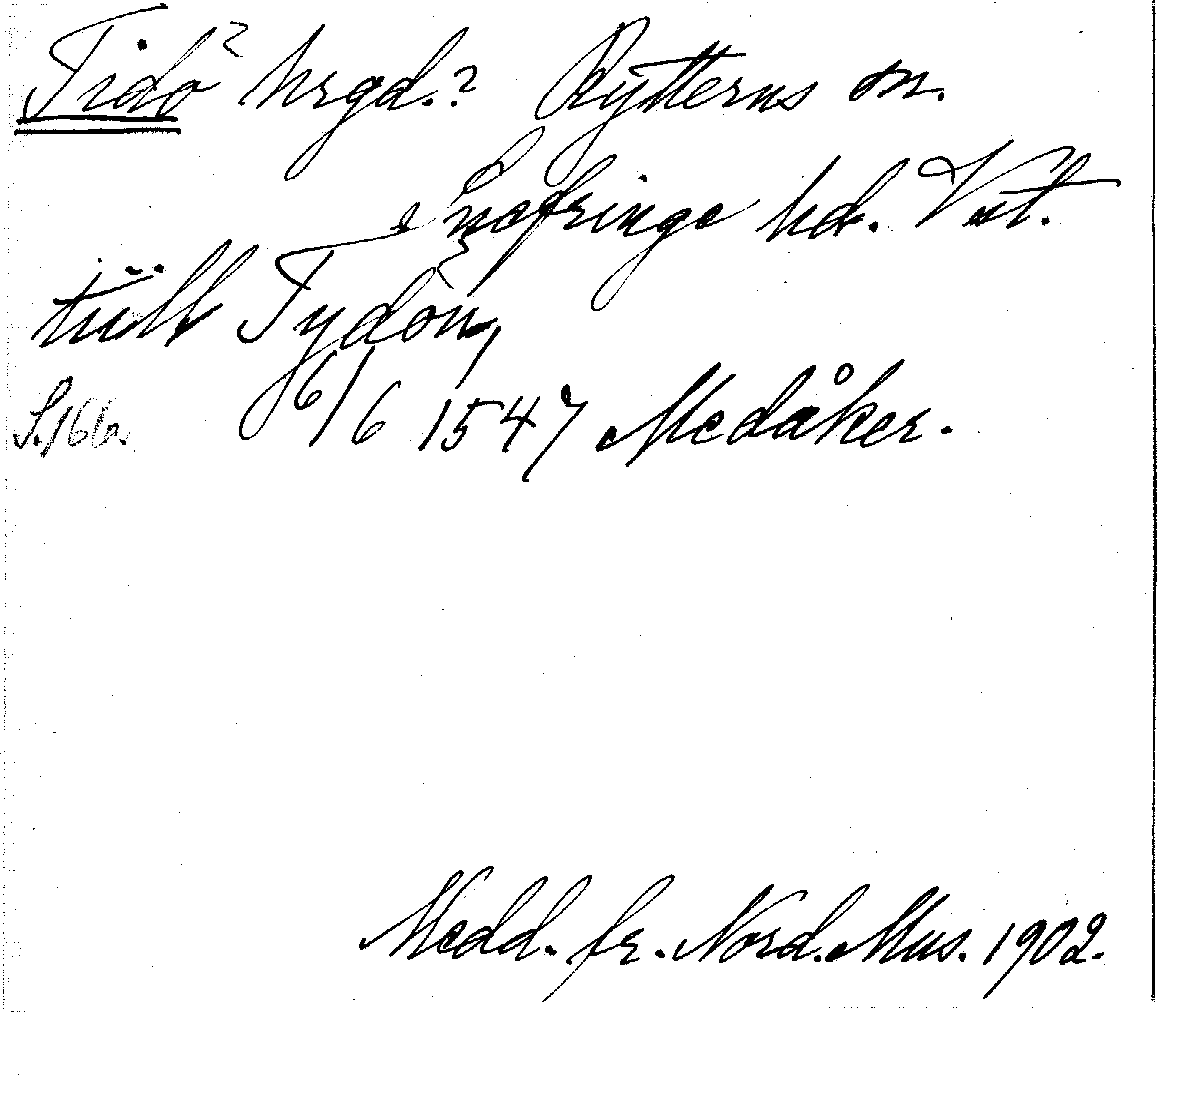 Tidö? hrgd.? Rytterns sn.
Snefringe hd. Vst.
tiill Tydön,
S. 166. 6/6 1547 Medåker.
Medd. fr. Nord. Mus. 1902.